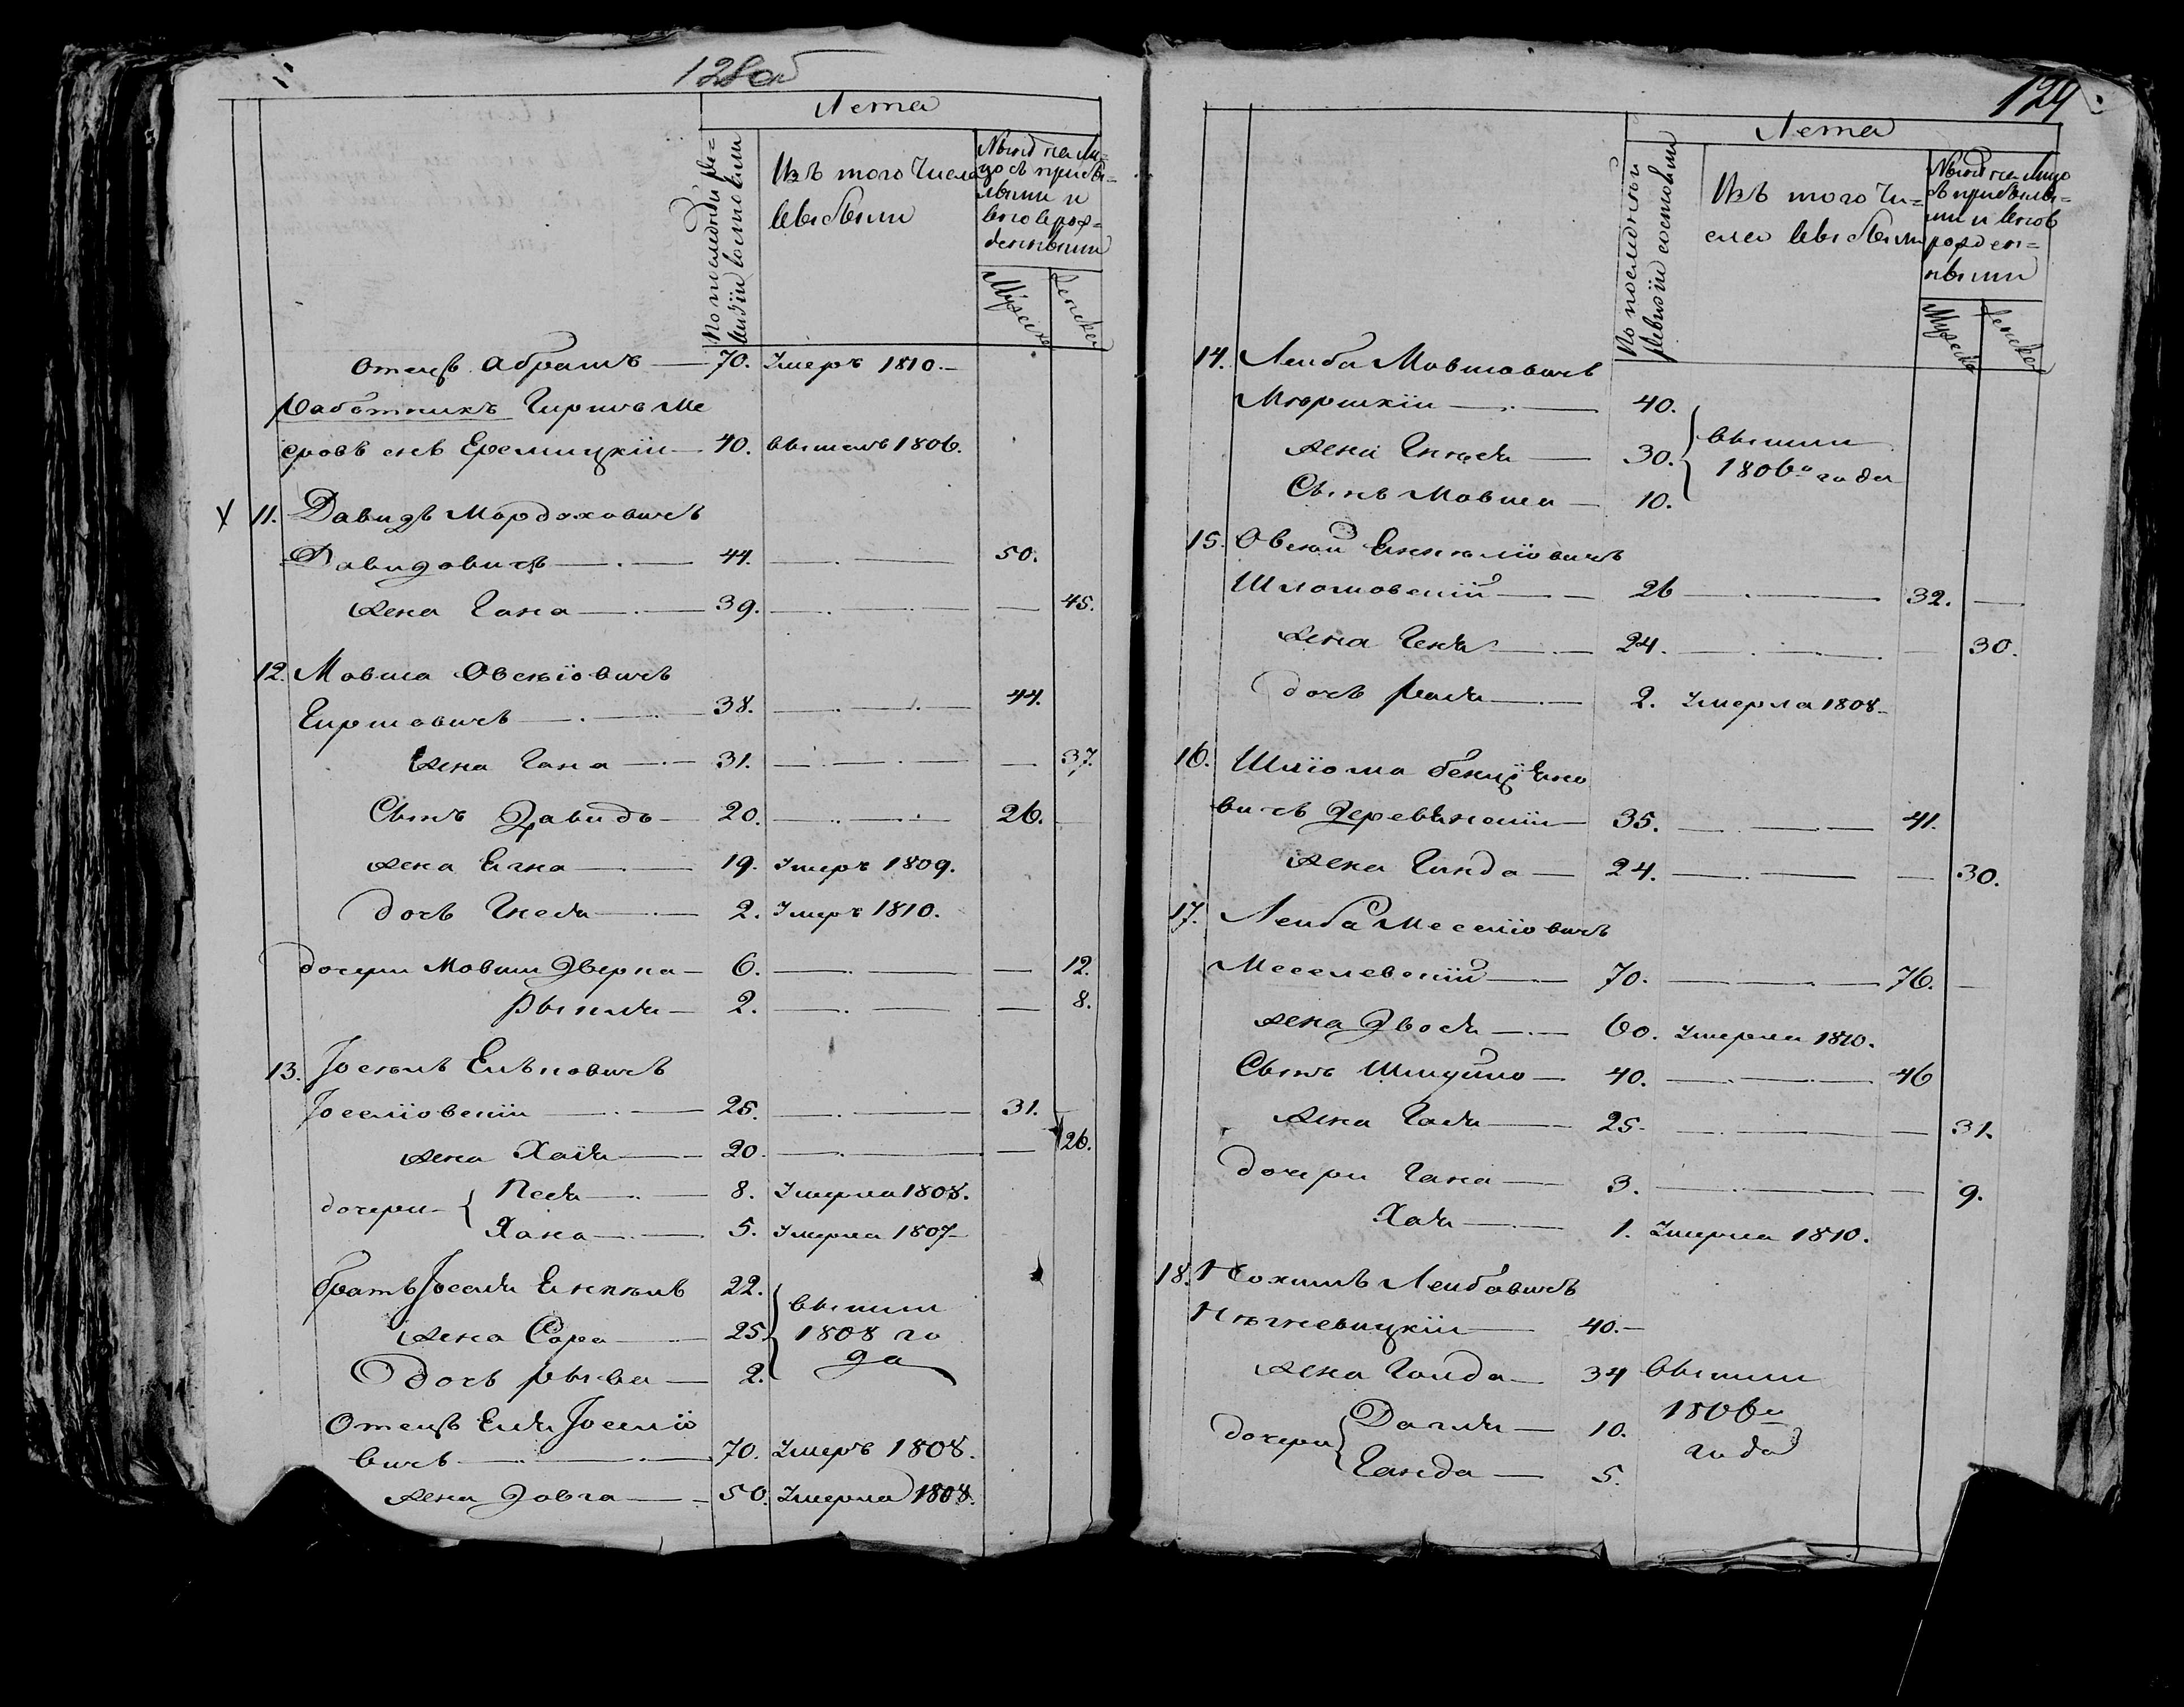 128об
Лета
По последней ре=
визіи состояли
Изъ того числа
выбыли
Ныне на ли=
цо съ прибы=
лыми и
вновь рож=
денными
Мужеска
Женска
Отецъ Абрамъ — 70. Умеръ 1810.
Работникъ Гиршъ Ме
еровъ Еремицкій — 40. вышелъ 1806.
11. Давидъ Мордуховичъ
Давидовичъ — 44. — 50.
Жена Гана — 39. — 45.
12. Мовша Овсеіовичъ
Гиршовичъ — 38. — 44.
Жена Гана — 31. — 37.
Сынъ Давидъ — 20. — 26.
жена — 19. Умеръ 1809.
дочь Гнеся — 2. Умеръ 1810.
дочери Мовши Дверка — 6. — 12.
— 2. — 8.
13. Іосель Ельовичъ
Іоселіовскій — 25. — 31.
жена Хая — 20. — 26.
дочери Песя — 8. Умерла 1808.
Хана — 5. Умерла 1807
братъ Іоселя Енкель 22.
жена Сора — 25 вышли
1808 го
да
дочь Рыва — 2.
Отецъ Еля Іоселіо
вичъ — 70. Умеръ 1808.
жена — 50. Умерла 1808.
129
Лета
По последней
ревизіи состояли
Изъ того чи=
сла выбыли
Ныне на лицо
съ прибылы=
ми и вновь
рожден=
ными
Мужеска
Женска
14. Лейба Мовшовичъ
40.
жена — 30. вышли
1806го года
Сынъ Мовша — 10.
15. Овсей Енкеліовичъ
Шломовскій — 26 — 32.
жена Геня — 24. — 30.
дочь — 2. Умерла 1808
16. Шліома
вичъ Деревянскій — 35. — 41.
жена Гинда — 24. — 30.
17. Лейба Меселіовичъ
Меселевскій — 70. — 76.
жена Двося — 60. Умерла 1810.
Сынъ Шмуйло — 40. — 46
жена — 25. — 31.
дочери Гана — 3. — 9.
Хая — 1. Умерла 1810.
18. Нохимъ Лейбовичъ
40.—
жена — 34 вышли
1806го
дочери — 10.
года
— 5.